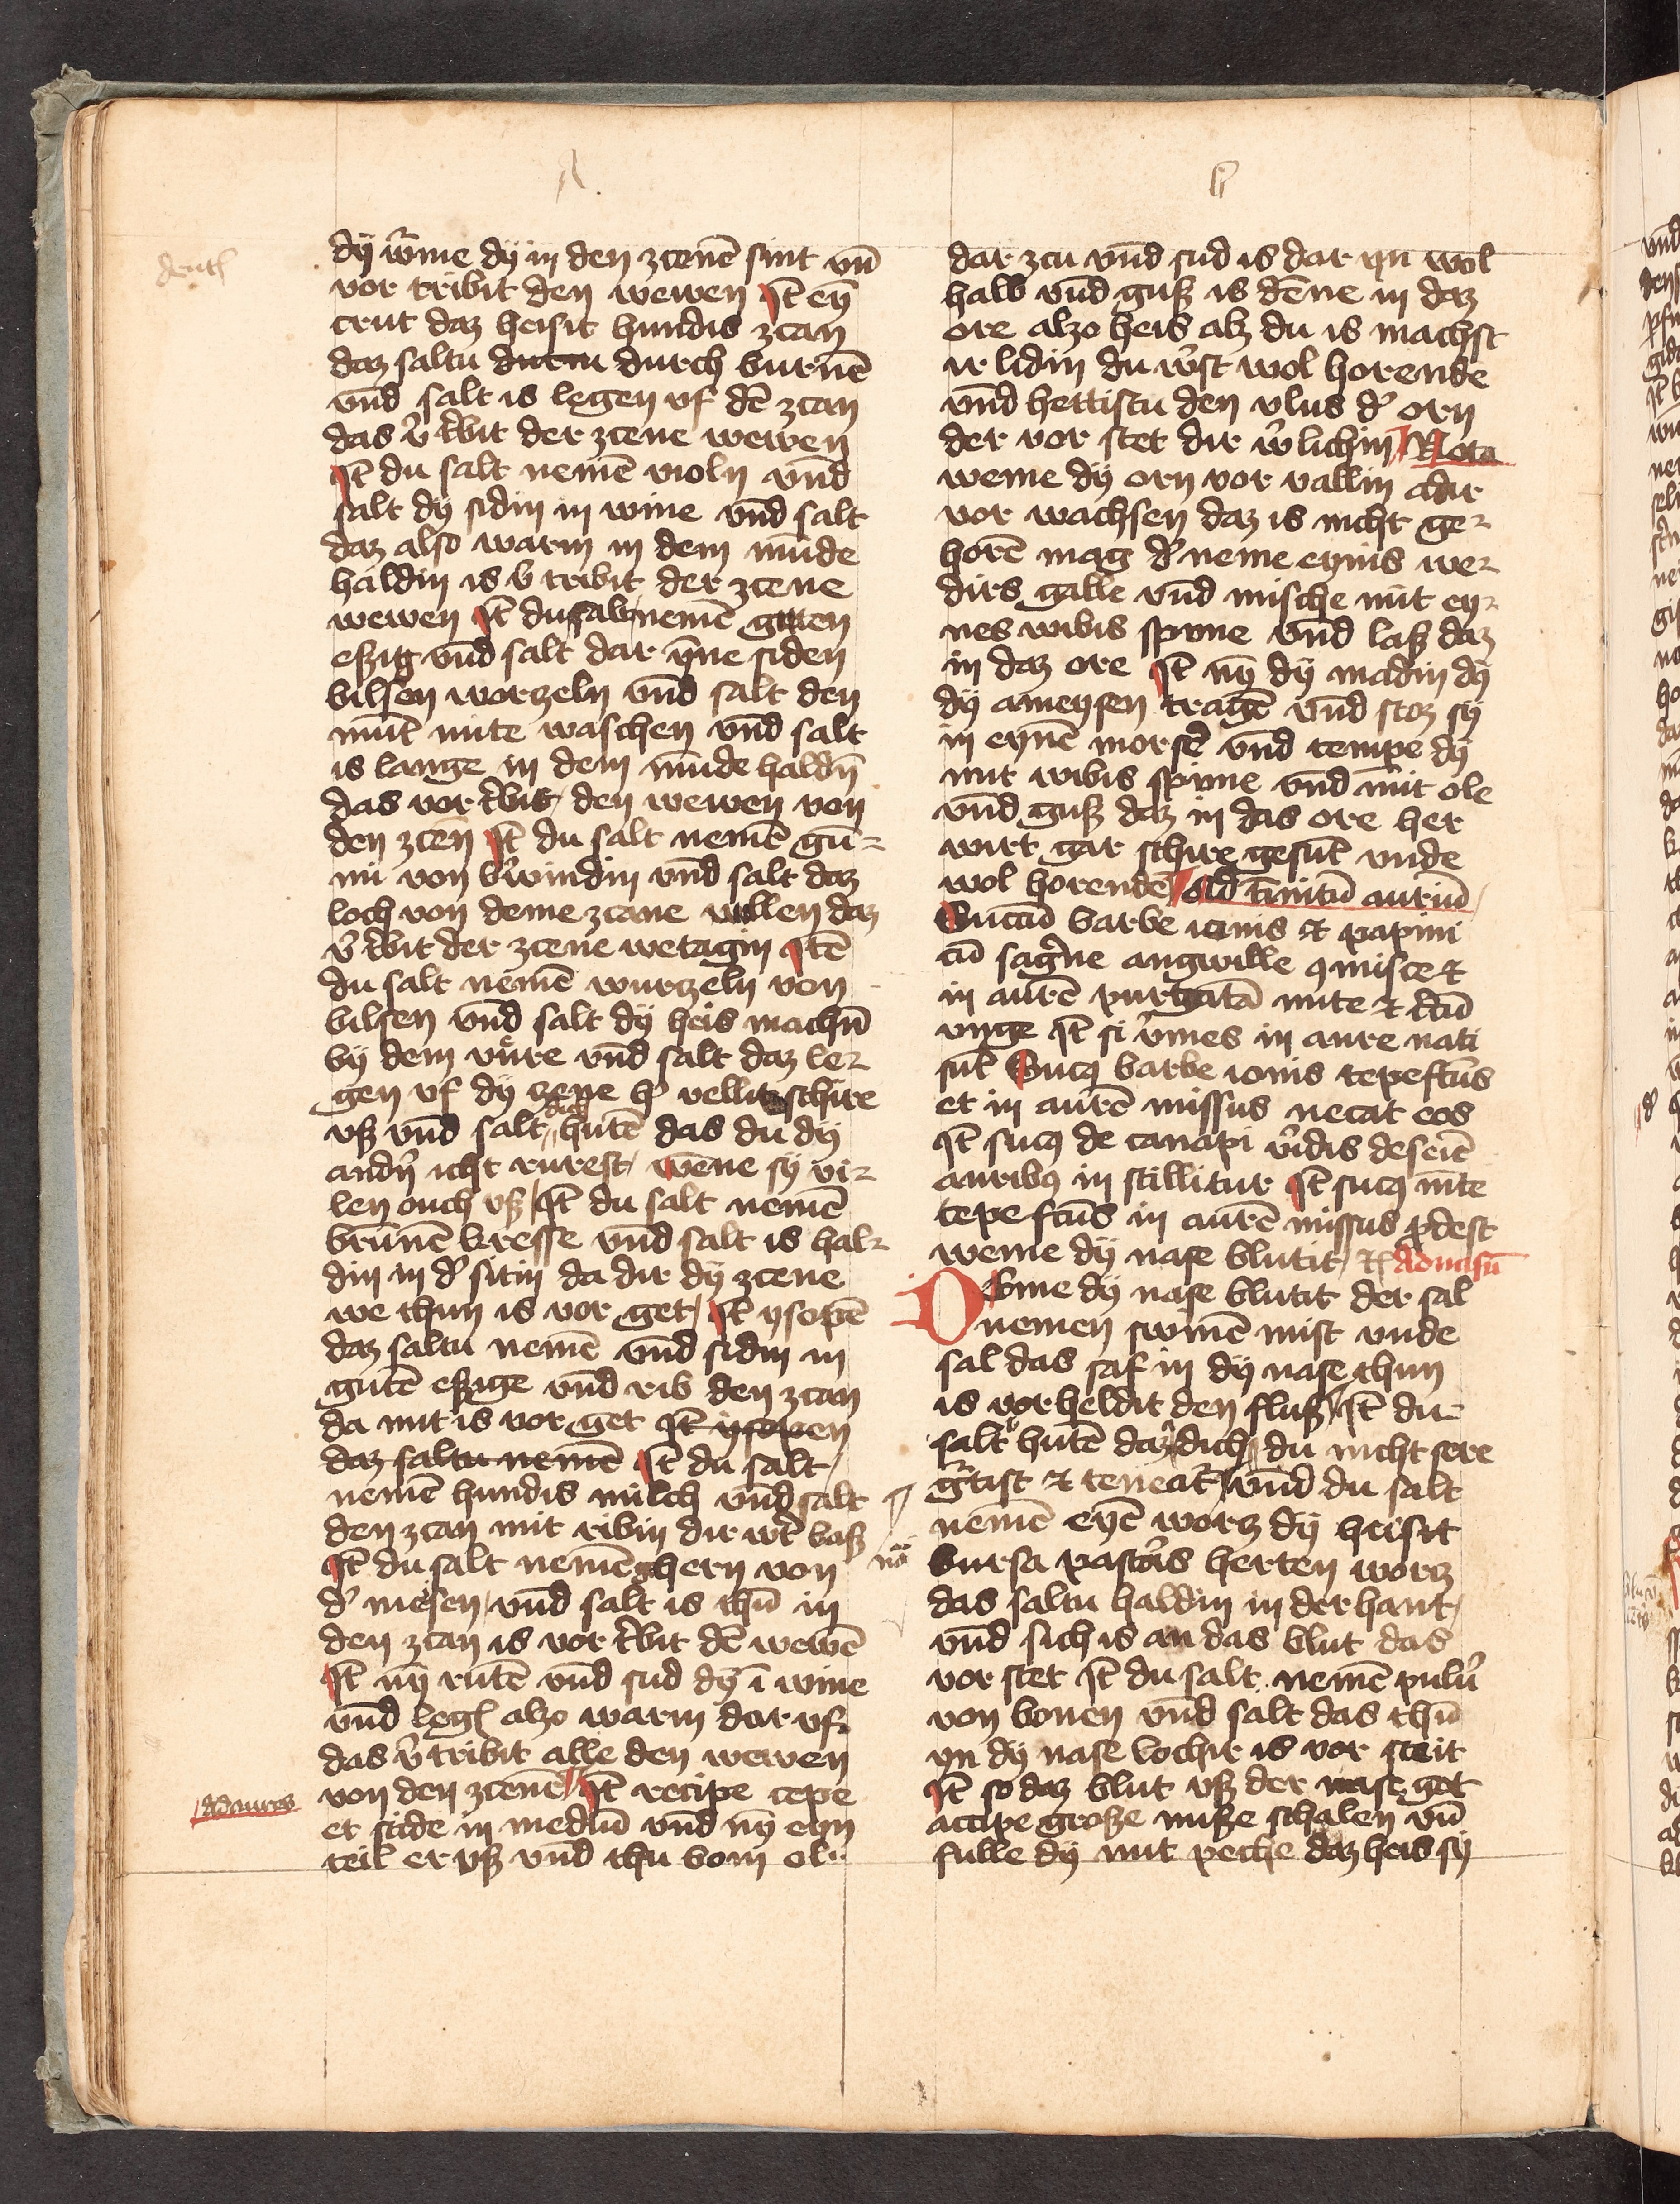 A.
b
dentes
dy ẘme dy in den zcenē sint vn̄
vor tribit den wewen It̄ eȳ
crut daz heisit hundis zcan
daz saltu durch burnē
vnd salt is legen vf dē zcan
das v̾ t̾bit der zcene wewen
It̄ du salt nemē violn vnd
salt dy sidin in wine vnd salt
daz also warm in dem munde
haldin is v̾ tribit der zcene
wewen It̄ du salt nemē guten
eszig vnd salt dar ynne siden
bilsen worczeln vnd salt den
mūt mite waschen vnd salt
is lange in dem munde haldn̄
das vor t̾bit den wewen von
den zcen It̄ du salt nemē gū-
mi von b̾windin vnd salt daz
loch von deme zcane vullen daz
v̾ t̾bit der zcene wetagin Itē
du salt nemē wurczeln von
bilsen vnd salt dy heis machn̄
by dem vure vnd salt daz le-
gen vf dy zene h̾ vellit schire
vß vnd salt dich hutē das du dy
andn̾ icht rurest wēne sy vi-
len ouch vß It̄ du salt nemē
brunē kresse vnd salt is hal-
din in d̾ sitin da dir dy zcene
we thun is vor get It̄ ysopē
daz saltu nemē vnd sidin in
gutē eszige vnd rib den zcan
da mit is vor get It̄ ysopen
daz saltu nemē It̄ du salt
nemē hundis milch vnd salt
den zcan mit ribin dir wt̾ baß
It̄ du salt nemē ghern von
d̾ mesen vnd salt is thū in
den zcan is vor t̾bit dē wewē
It̄ ny rutē vnd sud dy ī wine
vnd leg alzo warm dar vf
das v̾ tribit alle den wewen
von den zcenē It̄ recipe cepe
et scide in mediū vnd ny eyn
teil er vß vnd thu bom ole
Ad aures
dar zcu vnd sud is dar yn wol
halb vnd guß is dēne in daz
ore alzo heis alz du is machst
ir lidin du w̾st wol horende
vnd hettistu den vlus d̾ orn
der vor stet dir w̾lichin Nota
weme dy orn vor vallin adir
vor wachsen daz is nicht ge-
horē mag d̾ neme eynis we-
dirs galle vnd mische mit ey-
nes wibis spune vnd laß daz
in daz ore It̄ ny dy madin dy
dy ameysen tragē vnd stoz sy
in eynē morser vnd tempe dy
mit wibis spune vnd mit ole
vnd guß daz in das ore her
wirt gar schire gesūt vnde
wol horende Ad tinnitū auriū
Succū barbe iouis et papini
cū sag̾ne angwille ꝯmisce et
in aurē purgatā mite et
vnge It̄ si v̾mes in aure nati
sūt Sucꝯ barbe iouis tepeftūs
et in aurē missus necat eos
It̄ sucꝯ de canapi v̾idis
auribꝯ in stillitur It̄ sucꝯ mīte
tepeftūs in aurē missus ꝓdest
weme dy nase blutit Ad nasū
Deme dy nase blutit der sal
nemen swinē mist vnde
sal das saf in dy nase thun
is vorheldit den fluß It̄ du
salt hutē daz dich du nicht sere
vnd du salt
nemē eyē worz dy heisit
nō
bursa pastoris herten worz
das saltu haldin in der hant
vnd sich is an das blut das
vor stet It̄ du salt nemē pulu̾
von bonen vnd salt das thū
yn dy nase lochir is vor steit
It̄ so daz blut vß der nase get
accipe große nuße schalen vn̄
fulle dy mit peche daz heis sy